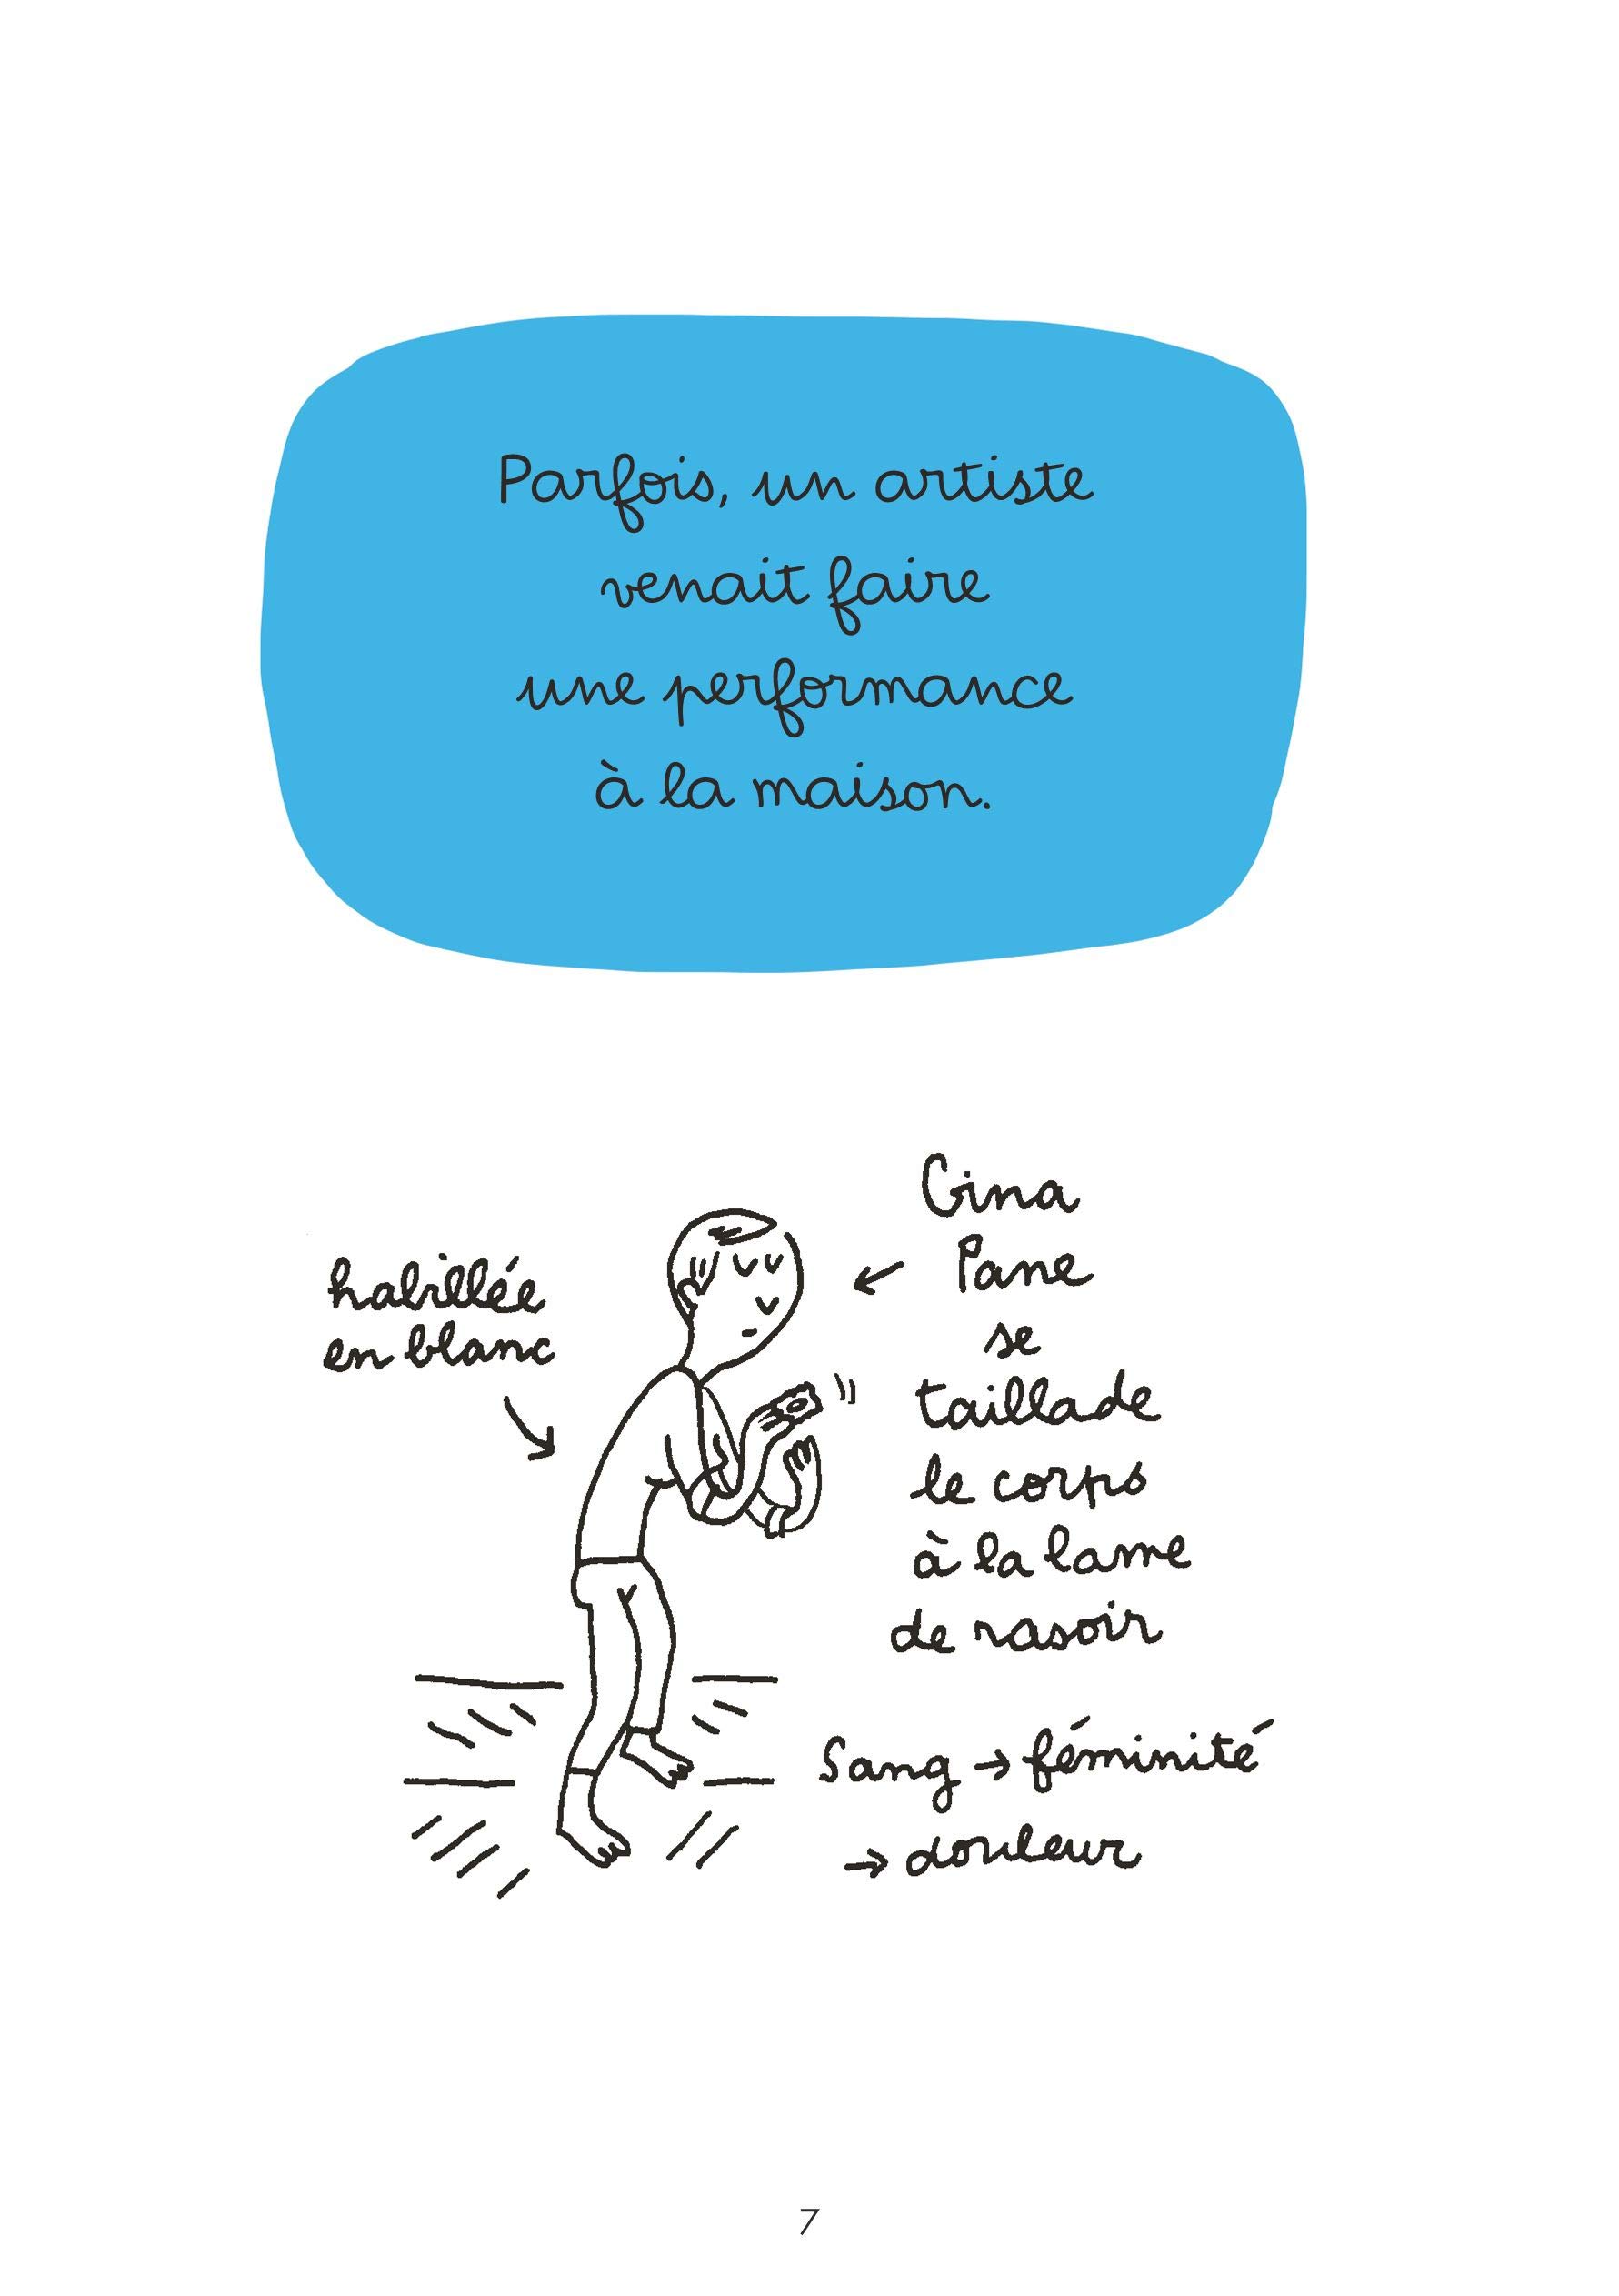 Parfois, un artiste
venait faire
une performance
à la maison.
habillée
en blanc
Gina
Pane
se
taillade
le corps
à la lame
de rasoir
Sang → féminité
→ douleur
7